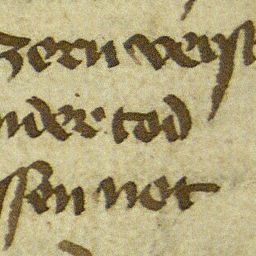 zern verst
nder tod
ssen not